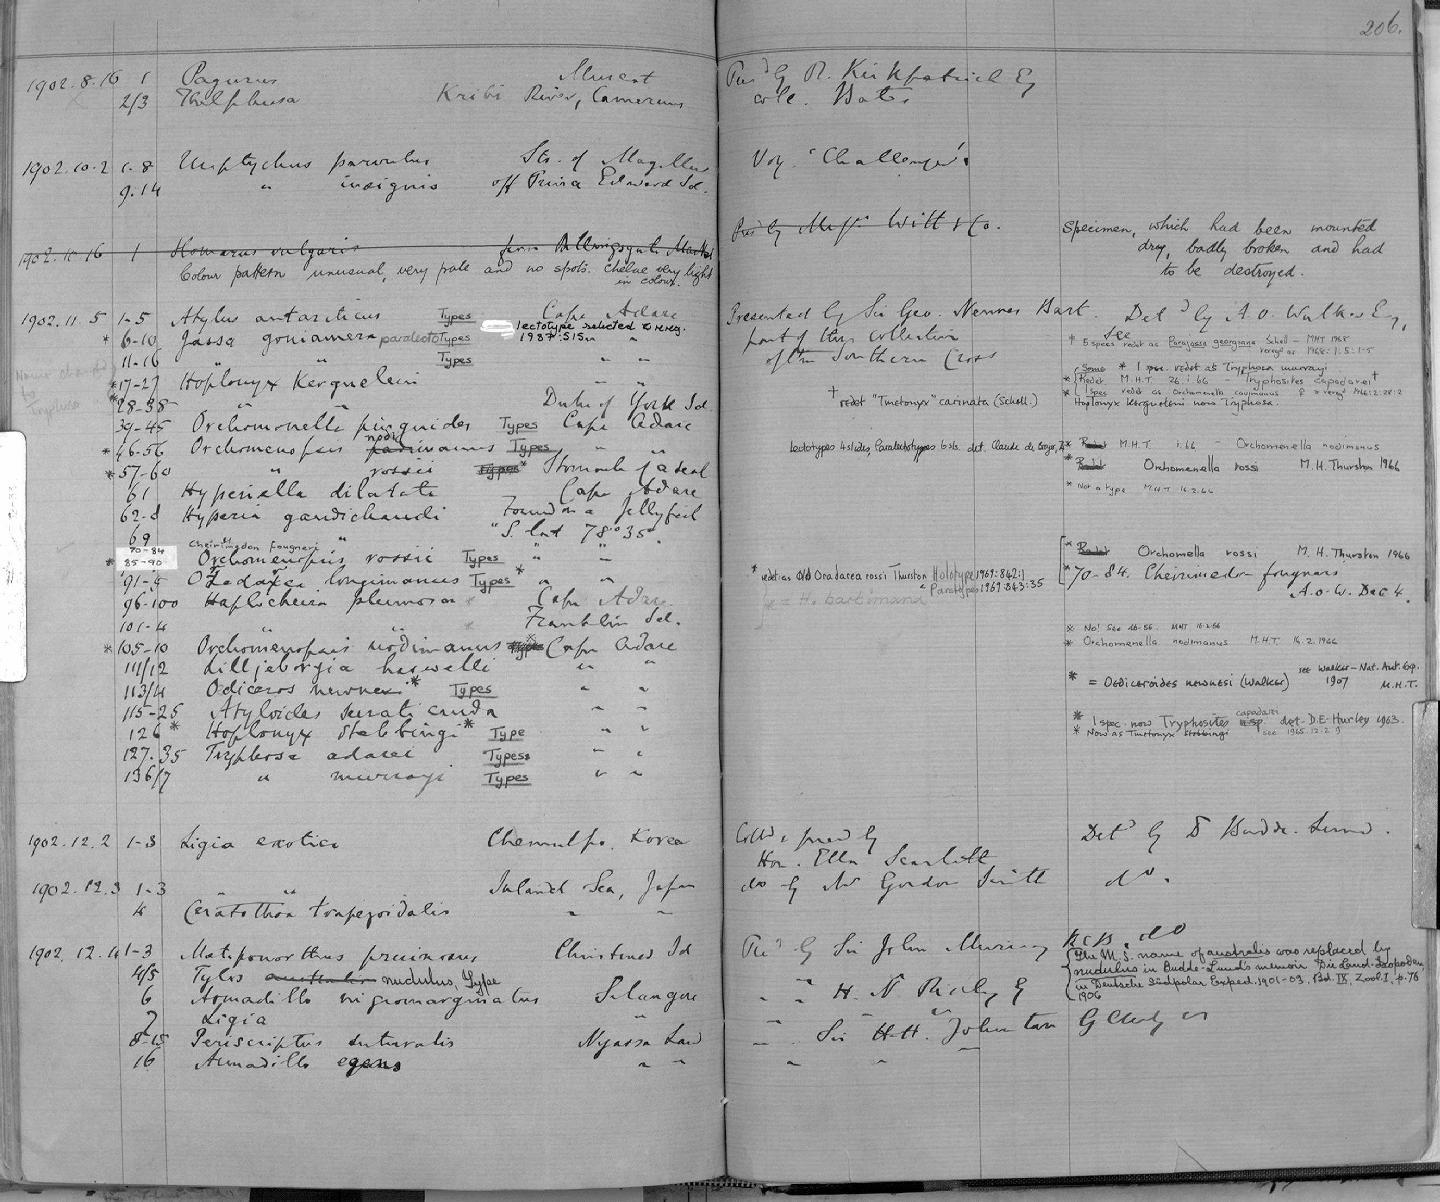 206.
1902.8.16 1 Pagurus Muscat Pres^d by R. Kirkpatrick Esq
2/3 Thelphusa Kribi River, Cameruns coll. Bates
1902.10.2 1-8 Uroptychus parvulus Sts. of Magellan Voy. "Challenger"
9.14 " insignis off Prince Edward Isl.
1902.10.16 1 Homarus vulgaris from Billingsgate Market Pres^d by Messrs Witt & Co. Specimen, which had been mounted
dry, badly broken and had
to be destroyed.
Colour pattern unusual, very pale and no spots. Chelae very light
in colour.
1902.11.5 1-5 Atylus antarcticus Types Cape Adare Presented by Sir Geo. Newnes Bart. Det^d by A.O. Walker Esq,
* 6-10 Jassa goniamera paralectoTypes lectotype selected & rereg. 1987:515 part of the collection
11-16 " " Types " " of the Southern Cross
see
* 5 specs redet as Parajassa georgiana Schell - MHT 1968
rereg^d as 1968:1:5:1-5
Name changed
to
Tryphosa
* 17-27 Hoplonyx Kerguelein " "
* 28-38 " " Duke of York Isl.
Some * 1 spec. redet as Tryphosa murrayi
* Redet. M.H.T. 26.i.66 - Tryphosites capadarei †
Hoplonyx Kergueleni now Tryphosa.
† redet "Tmetonyx" carinata (Schell.)
39-45 Orchomenella pinguides Types Cape Adare
* 46-56 Orchomenopsis nodimanus Types " "
lectotypes 4 slides, Paralectotypes 6 sls. det. Claude de Broyer,
* Redet M.H.T. i.66 - Orchomenella nodimanus
* 57-60 " rossii Types * Stomach of a seal
* Redet Orchomenella rossi M.H. Thurston 1966
61 Hyperiella dilatata Cape Adare
* Not a type M.H.T 16.2.66
62-8 Hyperia gaudichaudi Found on a Jellyfish
69 " " "S. lat 78°35'"
70-84 Cheirimedon fougneri
* 85-90 Orchomenopsis rossii Types " "
* Redet Orchomella rossi M.H. Thurston 1966
* 70-84. Cheirimedon fougneri
A.O.W. Dec 4.
91-5 Oradarea longimanus Types * " "
* redet as Oradarea rossi Thurston Holotype 1969:842:1
" Paratypes 1969:843:35
96-100 Haplocheira plumosa * Cape Adare
* = H. barbimana
101-4 " " * Franklin Isl.
* No! See 46-56. MHT 16.2.66
* 105-10 Orchomenopsis nodimanus Type * Cape Adare
* Orchomenella nodimanus M.H.T. 16.2.1966
111/12 Lilljeborgia haswelli " "
113/4 Oediceros newnesi * Types " "
* = Oediceroides newnesi (Walker) see Walker - Nat. Ant. Exp.
1907 M.H.T.
115-25 Atyloides serraticauda " "
126 * Hoplonyx stebbingi * Type " "
* 1 spec. now Tryphosites capadarei n.sp. det. D.E. Hurley 1963.
* Now as Tmetonyx stebbingi see 1965.12.2.9
127-35 Tryphosa adarei Types " "
136/7 " murrayi Types " "
1902.12.2 1-3 Ligia exotica Chemulpo, Korea Coll^d & pres^d by Det^d by D^r Budde-Lund.
Hon. Ella Scarlett
1902.12.3 1-3 " " Inland Sea, Japan do by Mr Gordon Smith do.
4 Ceratothoa trapezoidalis " "
1902.12.14 1-3 Metoponorthus pruinosus Christmas Isl Pres^d by Sir John Murray R.C.B. do
4/5 Tylos australis nudulus, Type
The M.S. name of australis was replaced by
nudulus in Budde-Lund's memoir Die Land-Isopoden
in Deutsche Südpolar Exped. 1901-03. Bd. IX, Zool. I, p. 76
1906
6 Armadillo nigromarginatus Selangor " " H. N. Ridley Esq
7 Ligia " " "
8-15 Periscyphis suturalis Nyassa Land " " Sir H.H. Johnston GCMG
16 Armadillo egens " " " " "